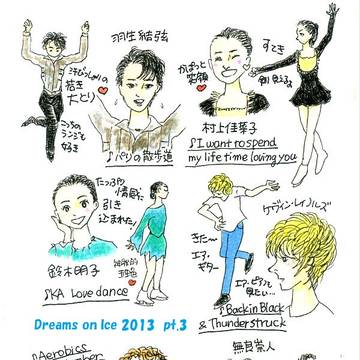 羽生結弦
汗びっしょりの
若き
大とり
こっちの
ランジも
好き
♪パリの散歩道
かぱっと
笑顔
すてき
村上佳菜子
♪I want to spend
my life time loving you
たっぷり
情感に
引き
込まれた!
鈴木明子
♪KA Love dance
ケヴィン・レイノルズ
きた〜
エア・
ギター
♪Back in Black
& Thunderstruck
Dreams on Ice 2013 pt.3
♪Aerobics
無良崇人